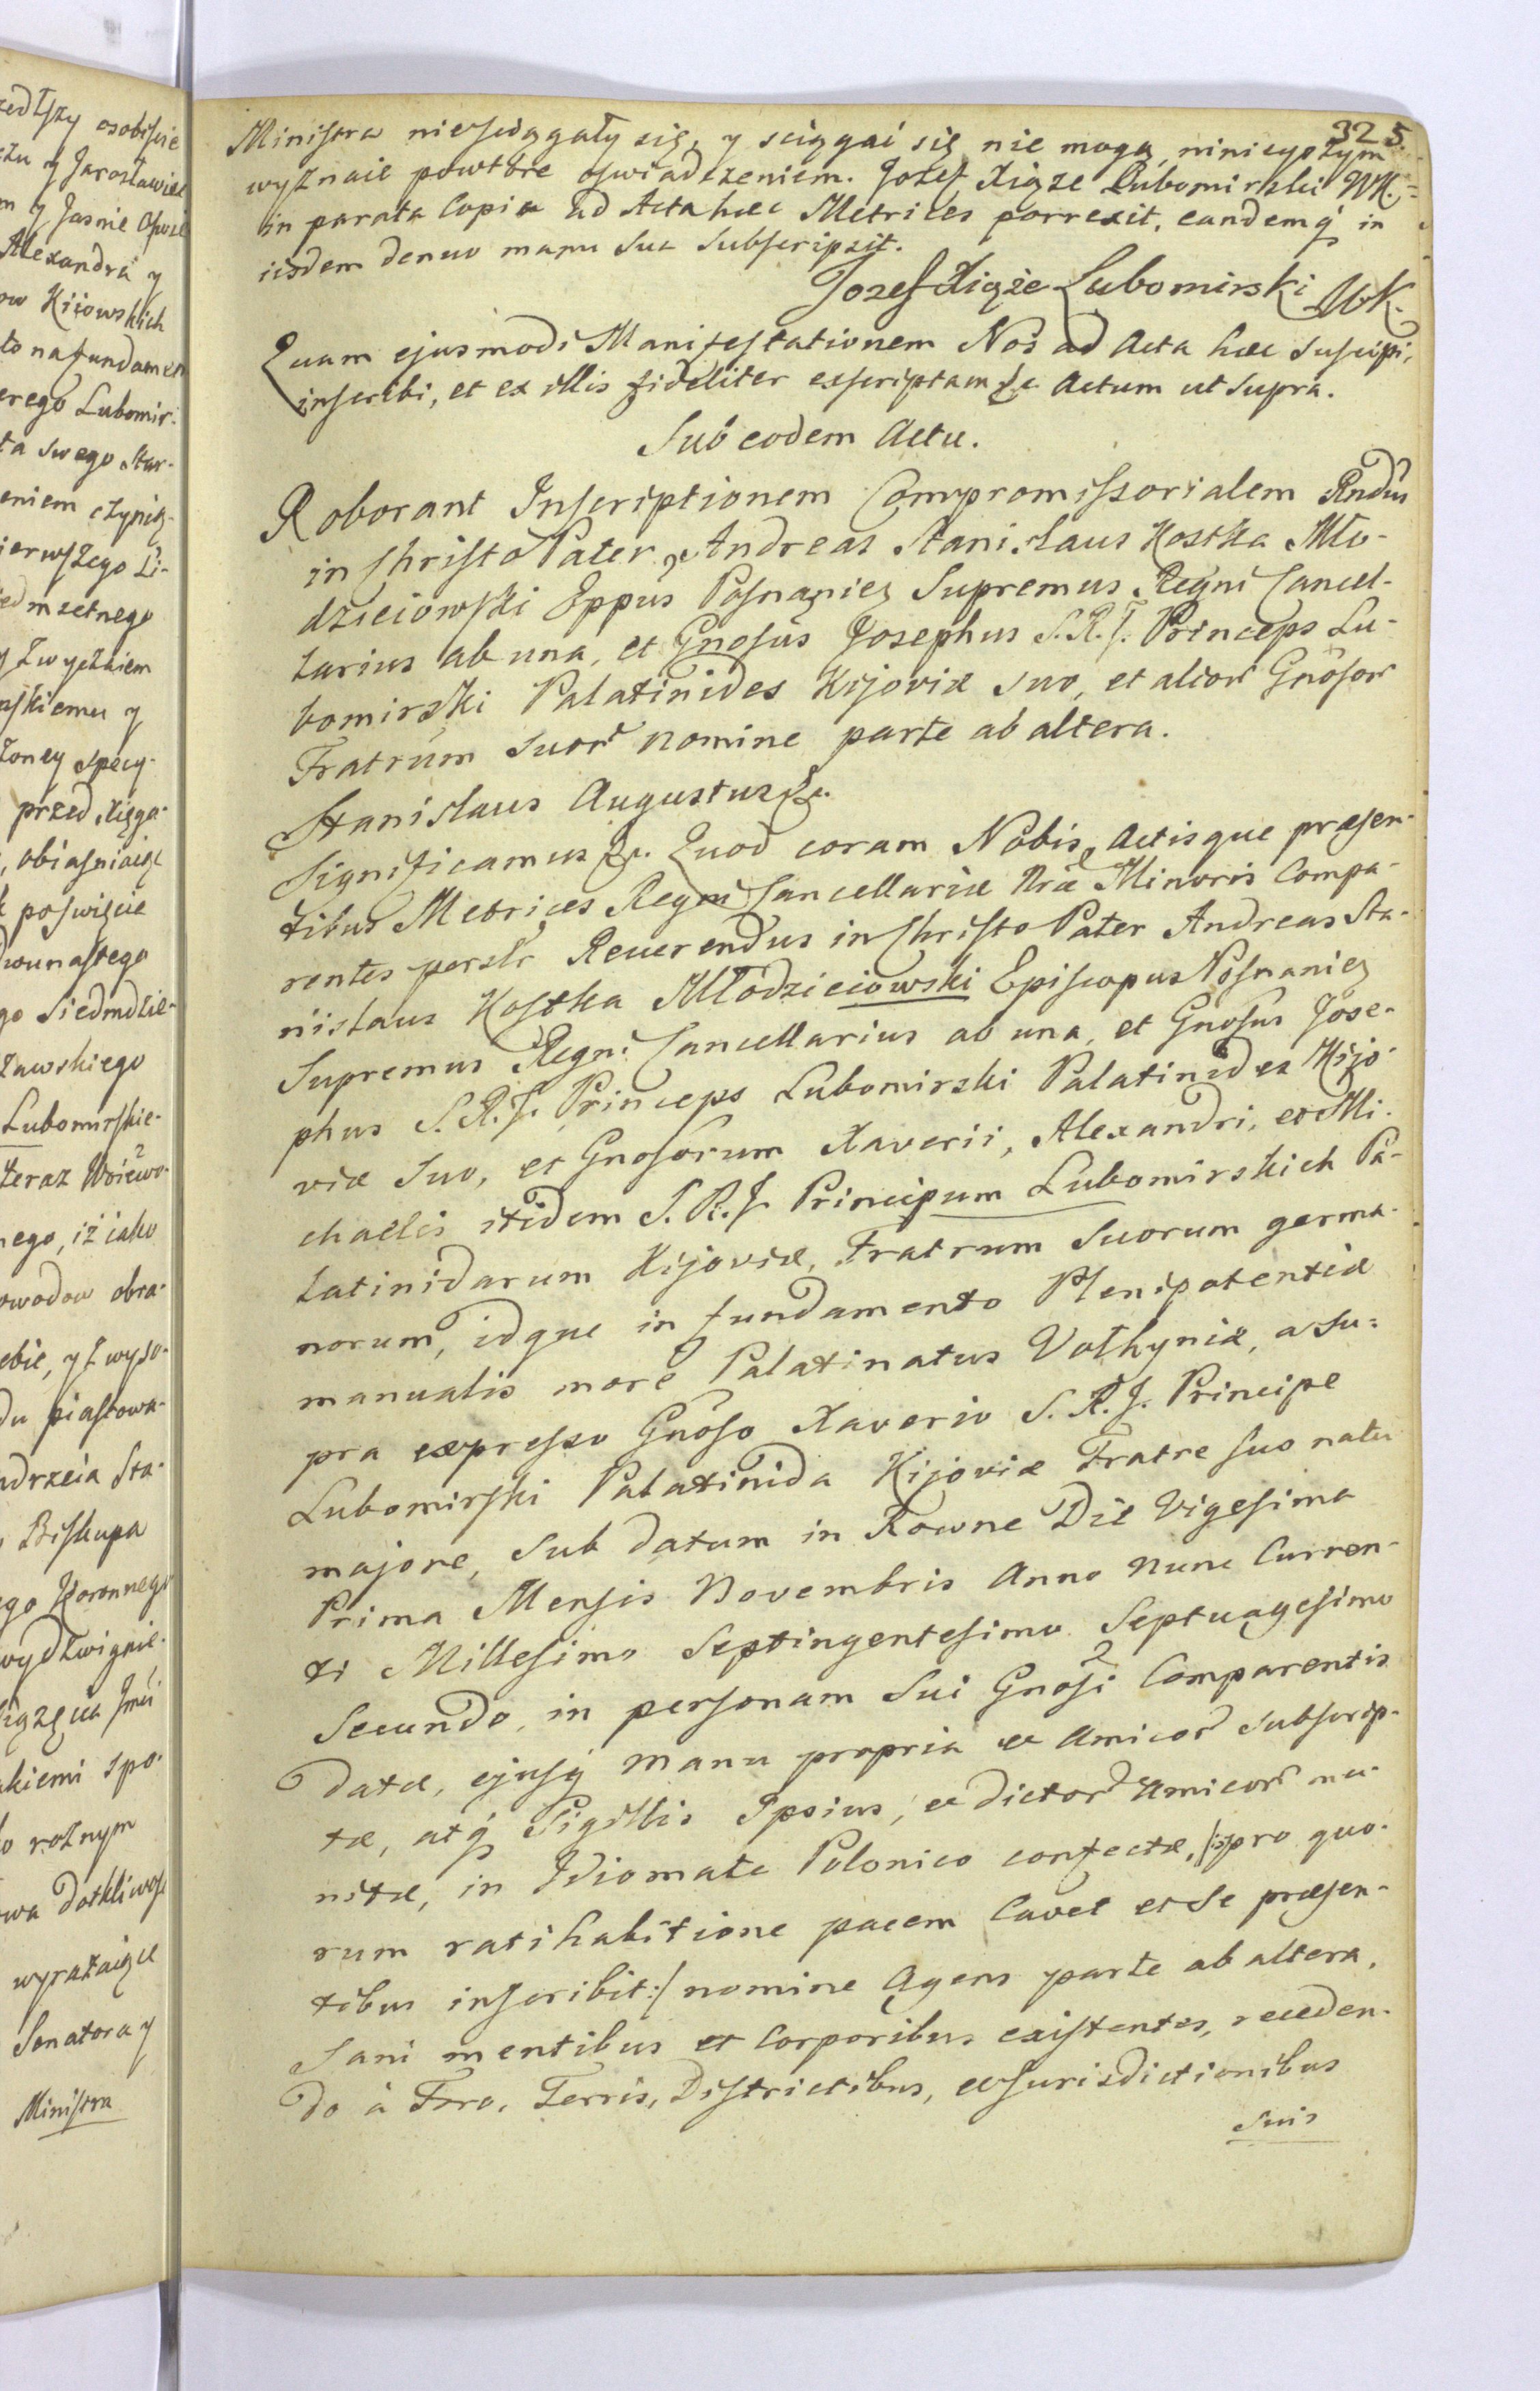 zedłszy osobiscie
y Jarosławiu
y Jasnie Oswie
Alexandra y
ow Kiiowskich
to nafundamen
erego Lubomir-
ta swego Star-
eniem czynią-
ierwszego Li-
iedmsetnego
y Zwyczaiem
skiemu y
żoney specy-
przed Xięga-
obiasniaiąc
poswięcie
dwunastego
go Siedmdzie-
zawskiego
Lubomirskie-
teraz Woiewo-
nego, iż iako
owodow obra-
ebie, y z wyso-
du piastowa-
ndrzeia Sta-
Biskupa
go Koronnego
wydzwignie-
kiemi spo-
o rożnym
wa dotkliwosc
wyrażaiące
Senatora y
Ministra
325.
Ministra niesciągały się, y sciągai się nie mogą, ninieyszym
wyznaie powtore oswiadczeniem. Jozef Xiąże Lubomirski WK.=
in parata Copia ad Acta hæc Metrices porrexit, eandemq́ in
iisdem denuo manu sua subscripsit.
Jozef Xiąże Lubomirski WK.
Quam ejusmodi Manifestationem Nos ad Acta hæc suscipi,
inscribi, et ex illis fideliter exscriptam &c Actum ut supra.
Sub eodem Actu.
Roborant Inscriptionem Compromissorialem Rndus
in Christo Pater &c Andreas Stanislaus Kostka Mło-
dzieiowski Eppus Posnanień Supremus Regni Cancel-
larius ab una, et Gnosus Josephus S. R. J. Princeps Lu-
bomirski Palatinides Kijoviæ suo, et alior Gnosor
Fratrum suor nomine parte ab altera.
Stanislaus Augustus &c.
Significamus &c. Quod coram Nobis, Actisque præsen-
tibus Metrices Regni Cancellariæ Nræ Minoris Compa-
rentes persłr Reuerendus in Christo Pater Andreas Sta-
nislaus Kostka Młodzieiowski Episcopus Posnanień
Supremus Regni Cancellarius ab una, et Gnosus Jose-
phus S. R. J. Princeps Lubomirski Palatinides Kijo-
viæ suo, et Gnosorum Xaverii, Alexandri, et Mi-
chaelis itidem S. R. J. Principum Lubomirskich Pa-
latinidarum Kijoviæ, Fratrum suorum germa-
norum, idque in fundamento Plenipotentiæ
manualis more Palatinatus Volhyniæ, a su-
pra expresso Gnoso Xaverio S. R. J. Principe
Lubomirski Palatinida Kijoviæ Fratre suo natu
majore, sub datum in Rowne Die Vigesima
Prima Mensis Novembris Anno nunc Curren-
ti Millesimo Septingentesimo Septuagesimo
Secundo, in personam sui Gnosi Comparentis
datæ, ejusq́ manu propria et Amicor subscrip-
tæ, atq́ Sigillis Ipsius, et dictor Amicor mu-
nitæ, in Idiomate Polonico confectæ, /:pro quo-
rum ratihabitione pacem Cavet et se præsen-
tibus inscribit:/ nomine Agens parte ab altera,
Sani mentibus et Corporibus existentes, receden-
do à Foro, Terris, Districtibus, et Jurisdictionibus
suis